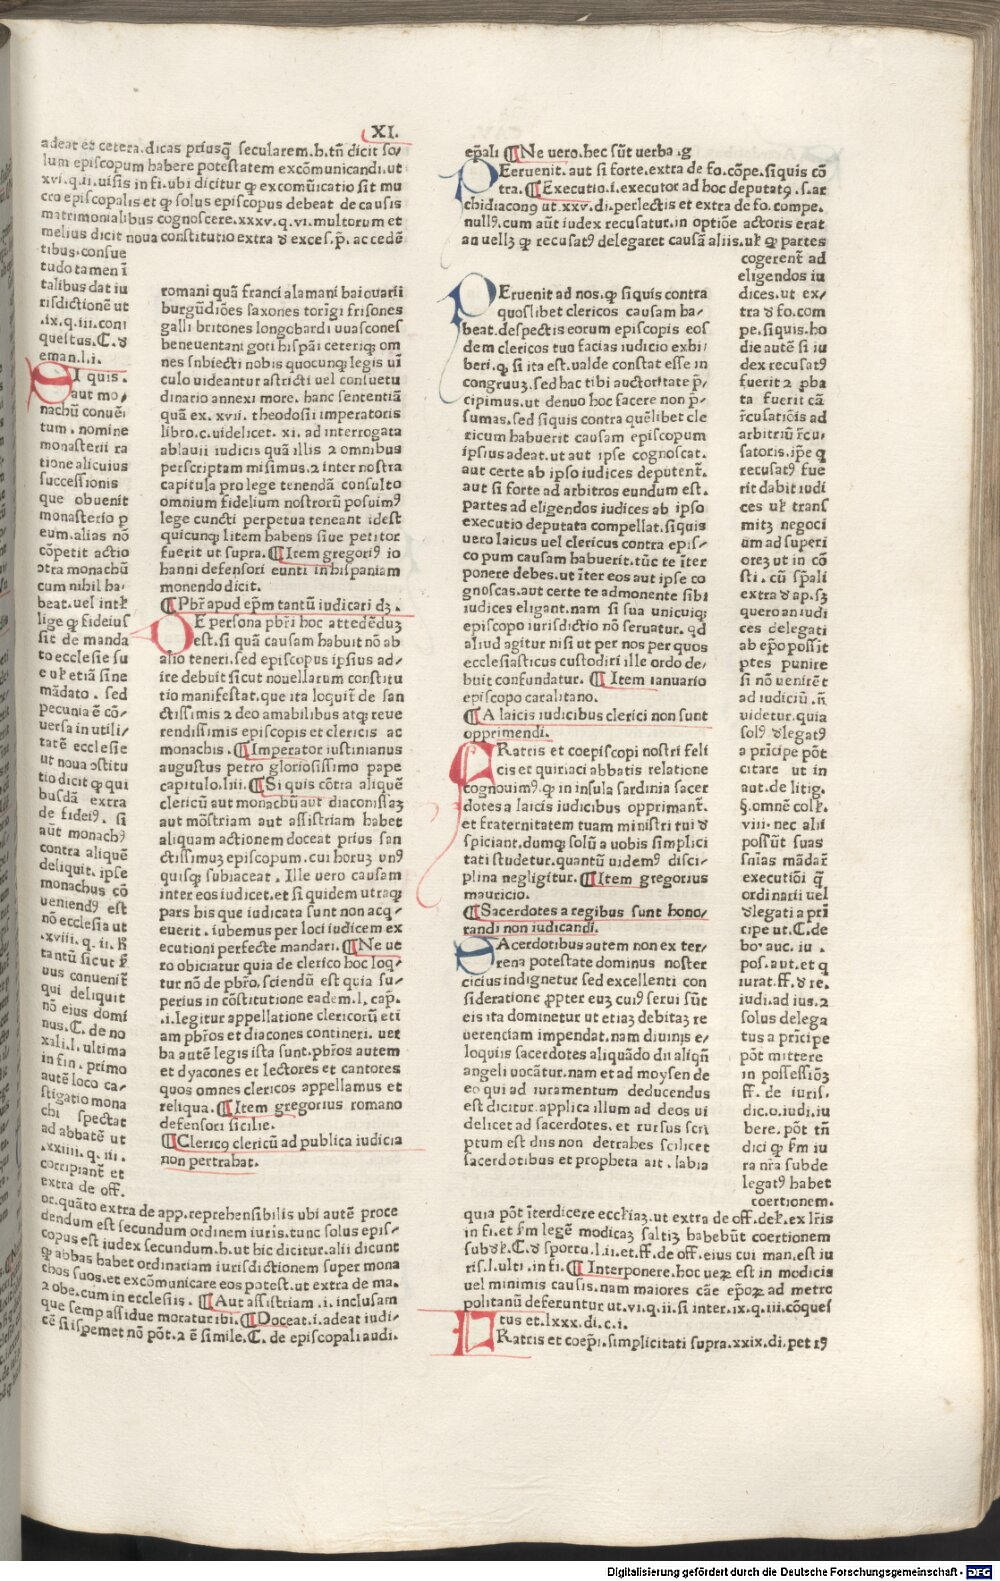 XI.
adeat et cetera.dicas priusq̃ secularem.h.tñ dicit so/
lum episcopum habere potestatem excōmunicandi.ut
xvi.q.ii.uisis in fi.ubi dicitur ꝙ excōmūicatio sit mu
cro episcopalis et ꝙ solus episcopus debeat de causis
matrimonialibus cognoscere.xxxv.q.vi.multorum et
melius dicit noua constitutio extra de exces.p̄. accedē
tibus.consue
tudo tamen ī
talibus dat iu
risdictionē ut
.ix.q.iii.con
questus.C.de
eman.l.i.
SI quis.
aut mo/
nachū conuēi
tum. nomine
monasterii ra
tione alicuius
successionis
que obuenit
monasterio p
eum.alias nō
cōpetit actio
ɔtra monachū
cum nihil ha/
beat.uel intel
lige ꝙ fideius
sit de manda
to ecclesie su
e uel etiā sine
mādato. sed
pecunia ē cō/
uersa in utili/
tatē ecclesie
ut noua ɔstitu
tio dicit ꝙ qui
busdā extra
de fideiꝰ. si
aūt monachꝰ
contra aliquē
deliquit. ipse
monachus cō
ueniendꝰ est
nō ecclesia ut
.xviii.q.ii.
tantū sicut
uus conuenit̄
qui deliquit
nō eius domi
nus.C.de no
xali.l.ultima
in fin. primo
autē loco ca/
stigatio mona
chi spectat
ad abbatē ut
.xxiiii.q.iii.
corripiant̄ et
extra de off.
or.quāto extra de app.reprehensibilis ubi autē proce
dendum est secundum ordinem iuris.tunc solus epis/
copus est iudex secundum.h.ut hic dicitur.alii dicunt
ꝙ abbas habet ordinariam iurisdictionem super mona
chos suos.et excōmunicare eos potest.ut extra de ma.
2 obe.cum in ecclesiis. ¶Aut assistriam.i.inclusam
que semp assidue moratur ibi.¶Doceat.i.adeat iudi/
cē si ispemet nō pōt.2 ē simile.C.de episcopali audi.
romani quā franci alamani baiouarii
burgūdiōes saxones torigi frisones
galli britones longobardi uuascones
beneuentani goti hispāi ceteriqꝫ om
nes snbiecti nobis quocunqꝫ legis uī
culo uideantur astricti uel consuetu
dinario annexi more. hanc sententiā
quā ex. xvii. theodosii imperatoris
libro.c.uidelicet. xi. ad interrogata
ablauii iudicis quā illis 2 omnibus
perscriptam misimus.2 inter nostra
capitula pro lege tenendā consulto
omnium fidelium nostrorū posuimꝰ
lege cuncti perpetua teneant idest
quicunqꝫ litem habens siue petitor
fuerit ut supra.¶Item gregoriꝰ io
hanni defensori eunti in hispaniam
monendo dicit.
¶Pbr̄ apud ep̄m tantū iudicari dꝫ.
DE persona pbr̄i hoc attedēduꝫ
est.si quā causam habuit nō ab
alio teneri.sed episcopus ipsius ad/
ire debuit sicut nouellarum constitu
tio manifestat.que ita loquit̄ de san
ctissimis 2 deo amabilibus atqꝫ reue
rendissimis episcopis et clericis ac
monachis.¶Imperator iustinianus
augustus petro gloriosissimo pape
capitulo.liii.¶Si quis cōtra aliquē
clericū aut monachū aut diaconissaꝫ
aut mōstriam aut assistriam habet
aliquam actionem doceat prius san
ctissimuꝫ episcopum.cui horuꝫ unꝰ
quisqꝫ subiaceat. Ille uero causam
inter eos iudicet.et si quidem utraqꝫ
pars his que iudicata sunt non acq̄/
euerit. iubemus per loci iudicem ex
ecutioni perfecte mandari.¶Ne ue
ro obiciatur quia de clerico hoc loq̄/
tur nō de pbr̄o.sciendū est quia su/
perius in cōstitutione eadem.l.cap̄.
.i.legitur appellatione clericorū eti
am pbr̄os et diacones contineri. uer
ba autē legis ista sunt.pbr̄os autem
et dyacones et lectores et cantores
quos omnes clericos appellamus et
reliqua.¶Item gregorius romano
defensori sicilie.
¶Clericꝰ clericū ad publica iudicia
non pertrahat.
ep̄ali ¶Ne uero.hec sūt uerba.g
PEeruenit. aut si forte.extra de fo.cōpe.si quis cō
tra.¶Executio.i.executor ad hoc deputatꝰ.s.ar
chidiaconꝰ ut.xxv.di.perlectis et extra de fo.compe.
nullꝰ.cum aūt iudex recusatur.in optiōe actoris erat
an uellꝫ ꝙ recusatꝰ delegaret causā aliis.uel ꝙ partes
cogerent̄ ad
eligendos iu
dices.ut ex/
tra de fo.com
pe.si quis.ho
die autē si iu
dex recusatꝰ
fuerit 2 pba
ta fuerit cā
r̄cusatiōis ad
arbitriū r̄cu/
satoris.ip̄e q̄
recusatꝰ fue
rit dabit iudi
ces uel trans
mitꝫ negoci
um ad superi
orēꝫ ut in cō
sti. cū sp̄ali
extra de ap.sꝫ
quero an iudi
ces delegati
ab ep̄o possīt
p̄tes punire
si nō uenirēt
ad iudiciū.n̄
uidetur.quia
solꝰ delegatꝰ
a prīcipe pōt
citare ut in
aut.de litig.
§.omnē coll.
viii.nec alii
possūt suas
snīas mādar̄
executiōi q̄
ordinarii uel
delegati a pri
cipe ut.C.de
bo.auc.iu.
pos.aut.et q
iurat.ff.de re.
iudi.ad ius.2
solus delega
tus a prīcipe
pōt mittere
in possessiōꝫ
ff. de iuris.
dic.o.iudi.iu
bere. pōt tñ
dici ꝙ fm iu
ra nr̄a subde
legatꝰ habet
coertionem.
PEruenit ad nos.ꝙ si quis contra
quoslibet clericos causam ha/
beat.despectis eorum episcopis eos
dem clericos tuo facias iudicio exhi/
beri.ꝙ si ita est.ualde constat esse in
congruuꝫ.sed hac tibi auctoritate p̄/
cipimus.ut denuo hoc facere non p̄/
sumas.sed si quis contra quēlibet cle
ricum habuerit causam episcopum
ipsius adeat.ut aut ipse cognoscat.
aut certe ab ipso iudices deputent̄.
aut si forte ad arbitros eundum est.
partes ad eligendos iudices ab ipso
executio deputata compellat.si quis
uero laicus uel clericus contra epis/
copum causam habuerit.tūc te īter
ponere debes.ut īter eos aut ipse co
gnoscas.aut certe te admonente sibi
iudices eligant.nam si sua unicuiqꝫ
episcopo iurisdictio nō seruatur. qd
aliud agitur nisi ut per nos per quos
ecclesiasticus custodiri ille ordo de/
buit confundatur. ¶Item ianuario
episcopo caralitano.
¶A laicis iudicibus clerici non sunt
opprimendi.
FRatris et coepiscopi nostri feli
cis et quiriaci abbatis relatione
cognouimꝰ.ꝙ in insula sardinia sacer
dotes a laicis iudicibus opprimant̄.
et fraternitatem tuam ministri tui de
spiciant.dumqꝫ solū a uobis simplici
tati studetur.quantū uidemꝰ disci/
plina negligitur.¶Item gregorius
mauricio.
¶Sacerdotes a regibus sunt hono/
randi non iudicandi.
SAcerdotibus autem non ex ter/
rena potestate dominus noster
cicius indignetur sed excellenti con
sideratione ꝓpter euꝫ cuiꝰ serui sūt
eis ita dominetur ut etiaꝫ debitaꝫ re
uerenciam impendat.nam diuinis e/
loquiis sacerdotes aliquādo dii aliqñ
angeli uocātur.nam et ad moysen de
eo qui ad iuramentum deducendus
est dicitur.applica illum ad deos ui
delicet ad sacerdotes.et rursus scri
ptum est diis non detrahes scilicet
sacerdotibus et propheta ait.labia
quia pōt īterdicere ecclīaꝫ.ut extra de off.del.ex lr̄is
in fi.et fm legē modicaꝫ saltiꝫ habebūt coertionem
sub del.C.de sportu.l.ii.et.ff.de off.eius cui man.est iu
ris.l.ulti.in fi.¶Interponere.hoc ueꝝ est in modicis
uel minimis causis.nam maiores cāe ep̄oꝝ ad metro
politanū deferuntur ut.vi.q.ii.si inter.ix.q.iii.cōques
tus et.lxxx.di.c.i.
FRatris et coep̄i.simplicitati supra.xxix.di.pet 19
Digitalisierung gefördert durch die Deutsche Forschungsgemeinschaft - DFG